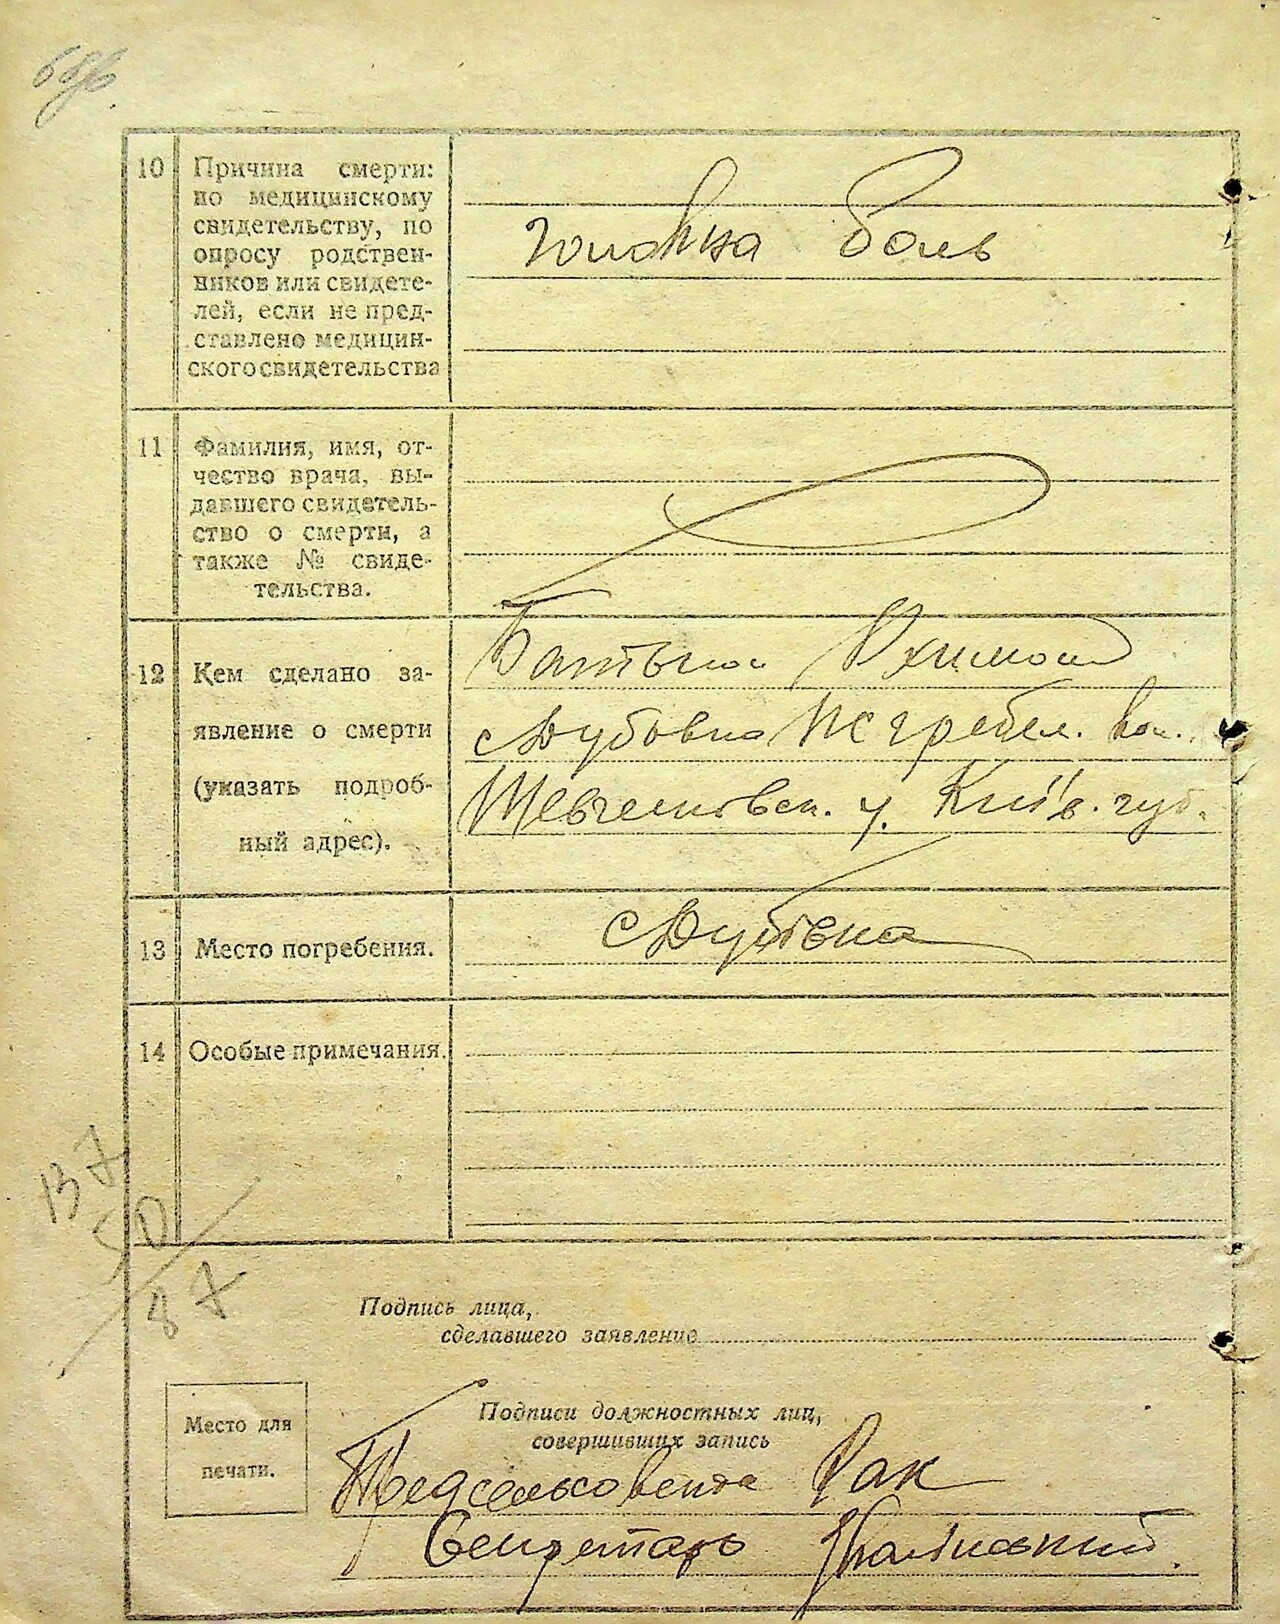 10 Причина смерти:
по медицинскому
свидетельству, по
опросу родствен-
ников или свидете-
лей, если не пред-
ставлено медицин-
ского свидетельства
боль
11 Фамилия, имя, от-
чество врача, вы-
давшего свидетель-
ство о смерти, а
также № свиде-
тельства.
12 Кем сделано за-
явление о смерти
(указать подроб-
ный адрес).
Батько
с Дубовка Н гребел. вол.
Шевченковск. у. Київ. губ.
13 Место погребения.
с Дубовка
14 Особые примечания.
137
50
87
Подпись лица,
сделавшего заявление
Место для
печати.
Подписи должностных лиц,
совершивших запись
Предсельсовета Рак
Секретарь